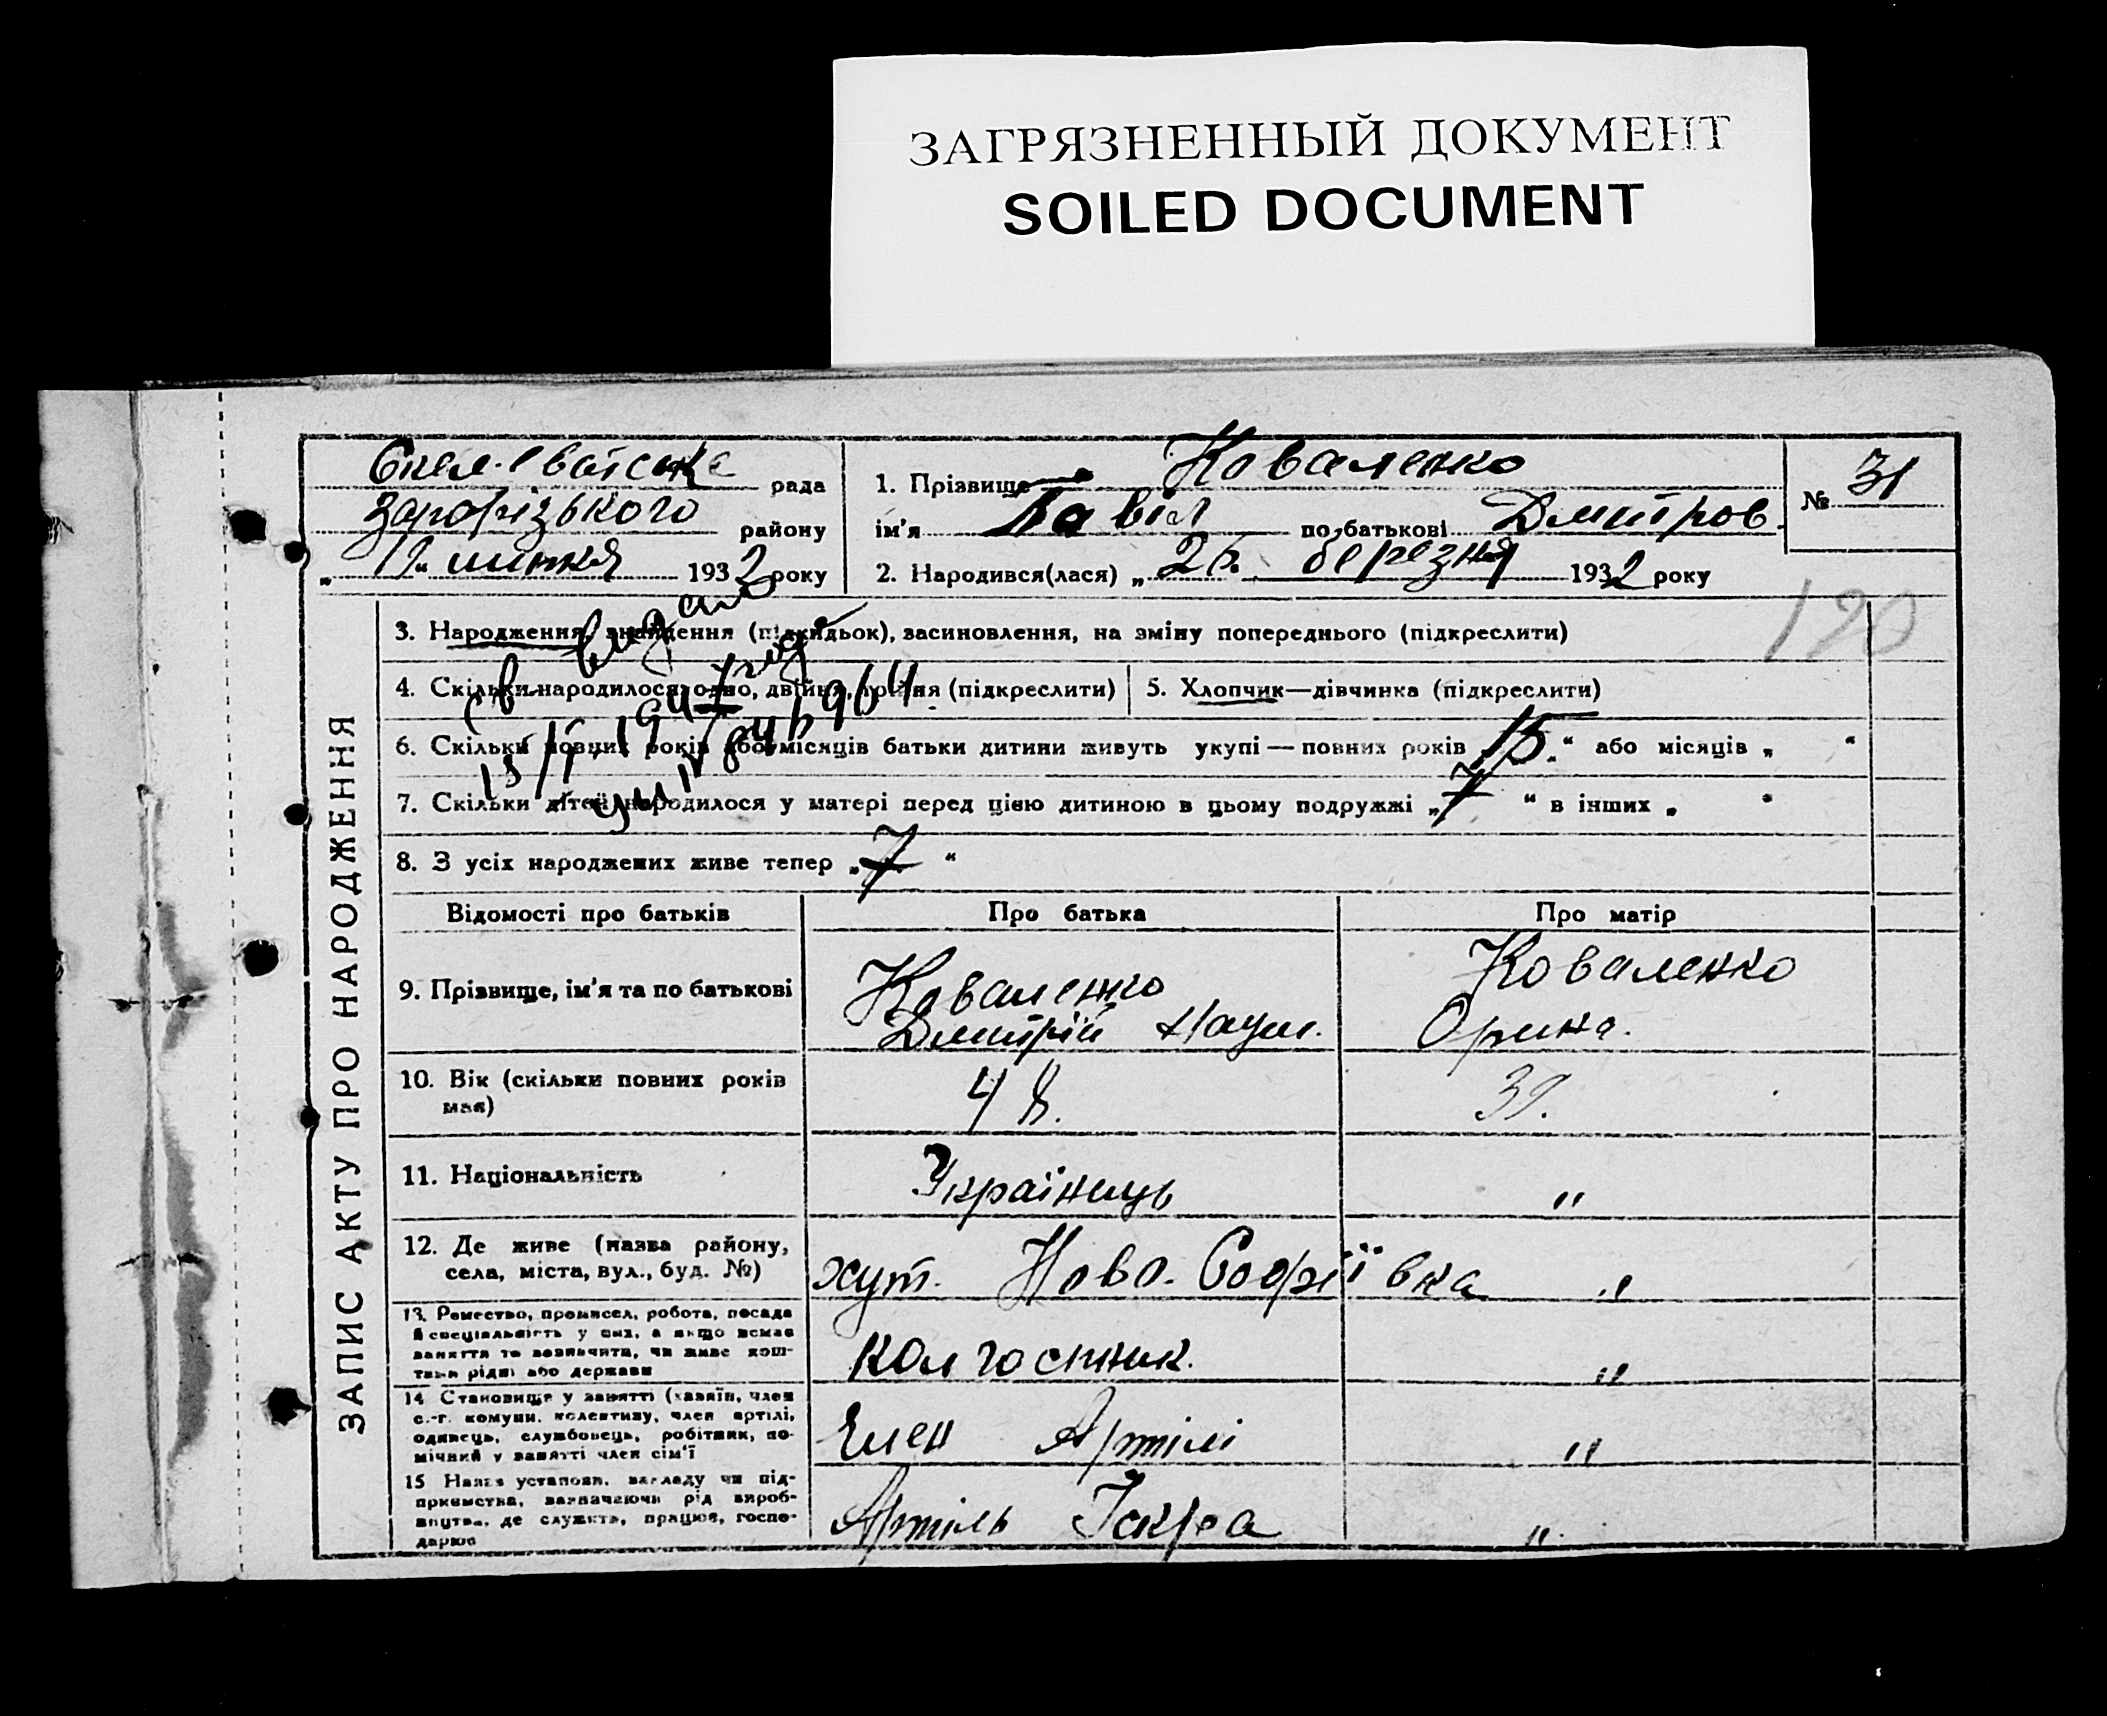 ЗАГРЯЗНЕННЫЙ ДОКУМЕНТ
SOILED DOCUMENT
рада
району
„ 19 “ липня 1932 року
1. Прізвище Коваленко
ім'я Павел по-батькові Дмитров.
2. Народився(лася) „ 26. березня 1932 року
№ 31
190
ЗАПИС АКТУ ПРО НАРОДЖЕННЯ
3. Народження, знайдення (підкидьок), засиновлення, на зміну попереднього (підкреслити)
4. Скільки народилося: одно, двійня, трійня (підкреслити)
5. Хлопчик—дівчинка (підкреслити)
6. Скільки повних років або місяців батьки дитини живуть укупі — повних років „ 15. “ або місяців „ “
7. Скільки дітей народилося у матері перед цією дитиною в цьому подружжі „ 7 “ в інших „ “
8. З усіх народжених живе тепер „ 7 “
Св видано
Відомості про батьків
Про батька
Про матір
9. Прізвище, ім'я та по батькові
Коваленко
Дмитрій Наум.
Коваленко
Орина.
10. Вік (скільки повних років
має)
48.
39.
11. Національність
Українець
"
12. Де живе (назва району,
села, міста, вул., буд. №)
хут. Ново-Софіївка
"
13. Ремество, промисел, робота, посада
й спеціяльність у них, а якщо немає
заняття то зазначити, чи живе кош-
тами рідні або держави
колгоспник.
"
14 Становище у занятті (хазяїн, член
с.-г. комуни, колективу, член артілі,
одинець, службовець, робітник, по-
мічний у занятті член сім'ї
Член Артілі
"
15 Назва установи, закладу чи під-
приємства, зазначаючи рід вироб-
ництва, де служить, працює, госпо-
дарює
Артіль Іскра
"